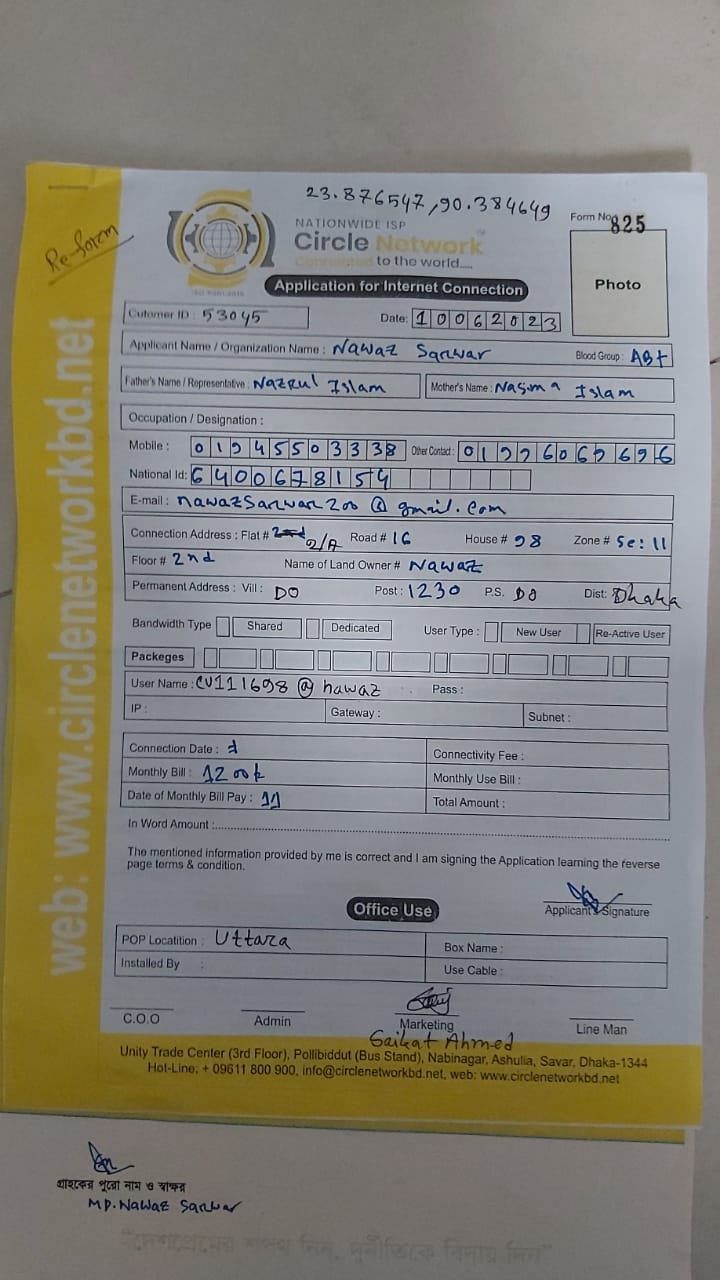 23.876547,90.384649
Re-form
NATIONWIDE ISP
Circle Network
Connected to the world....
Form No 825
Photo
Application for Internet Connection
Cutomer ID : 53045
Date: 10062023
Applicant Name / Organization Name : Nawaz Sarwar Blood Group : AB+
Father's Name / Representative : Nazrul Islam Mother's Name : Nasima Islam
Occupation / Designation :
Mobile : 01945503338 Other Contact :
National Id: 6400678154
E-mail : nawazsarwar200@gmail.com
Connection Address : Flat # 2/A Road # 16 House # 98 Zone # Se: 11
Floor # 2nd Name of Land Owner # Nawaz
Permanent Address : Vill : DO Post : 1230 P.S. DO Dist: Dhaka
Bandwidth Type Shared Dedicated User Type : New User Re-Active User
Packeges
User Name : CV111698@nawaz Pass :
IP : Gateway : Subnet :
Connection Date : Connectivity Fee :
Monthly Bill : 1200tk Monthly Use Bill :
Date of Monthly Bill Pay : 11 Total Amount :
In Word Amount :
The mentioned information provided by me is correct and I am signing the Application learning the reverse
page terms & condition.
Applicant Signature
Office Use
POP Locatition : Uttara Box Name :
Installed By : Use Cable :
C.O.O Admin Marketing Line Man
Saikat Ahmed
Unity Trade Center (3rd Floor), Pollibiddut (Bus Stand), Nabinagar, Ashulia, Savar, Dhaka-1344
Hot-Line: + 09611 800 900, info@circlenetworkbd.net, web: www.circlenetworkbd.net
web: www.circlenetworkbd.net
গ্রাহকের পুরো নাম ও স্বাক্ষর
MD. Nawaz Sarwar
"দেশপ্রেমের শপথ নিন, দুর্নীতিকে বিদায় দিন"